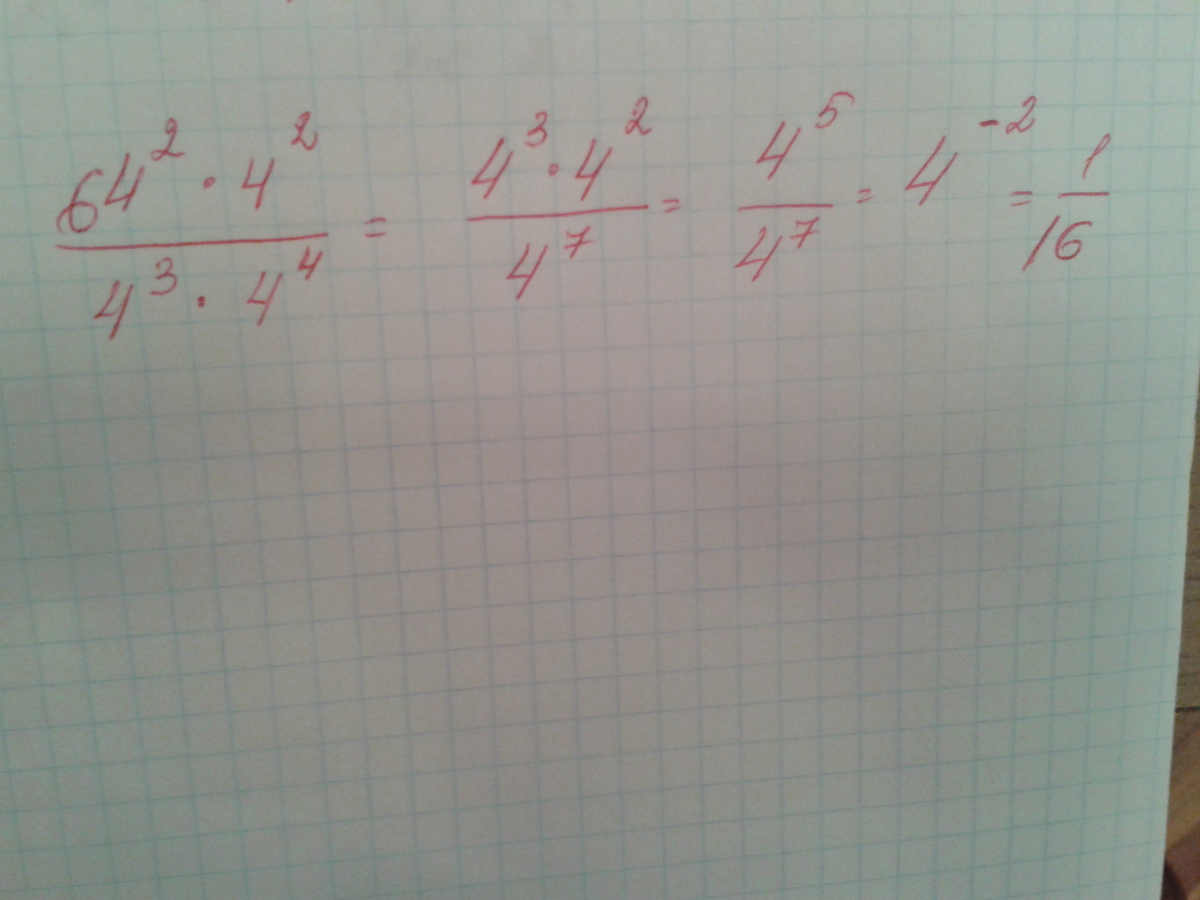 64² · 4² / 4³ · 4⁴ = 4³ · 4² / 4⁷ = 4⁵ / 4⁷ = 4⁻² = 1 / 16